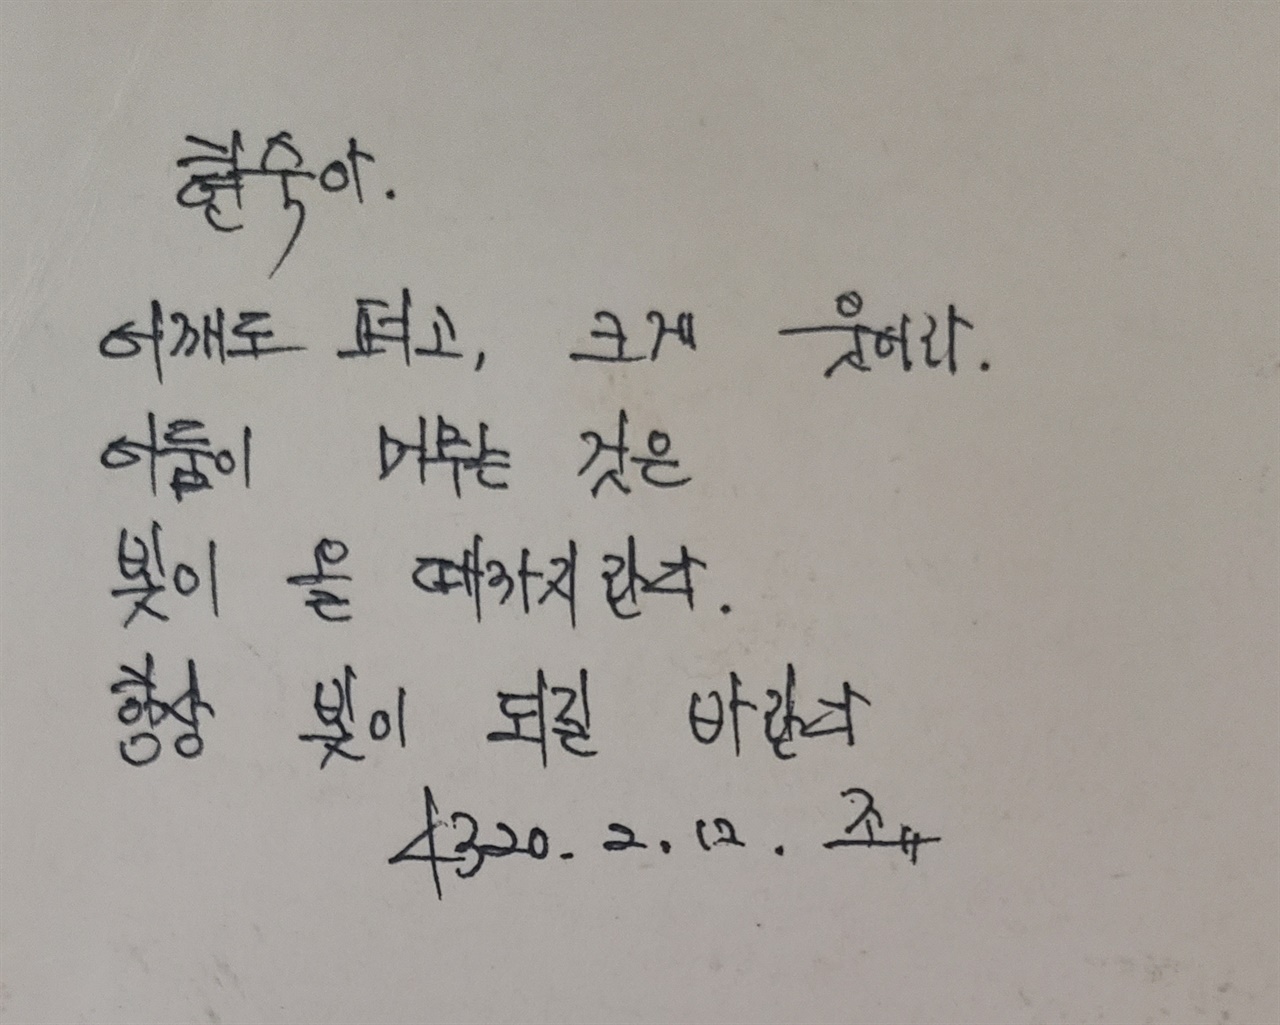 현숙아.
어깨도 펴고, 크게 웃어라.
어둠이 머무는 것은
빛이 올 때까지란다.
항상 빛이 되길 바란다
4320. 2. 12.